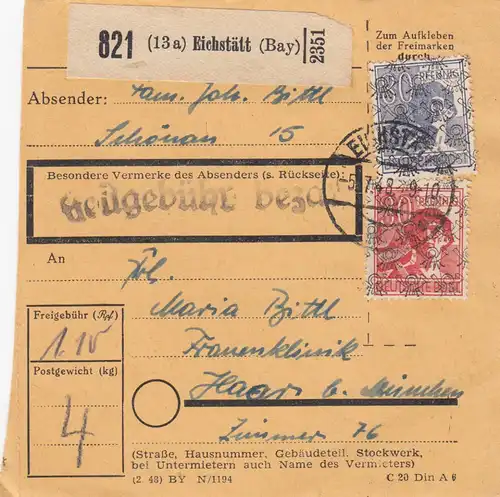 821 (13a) Eichstätt (Bay) 2351
Zum Aufkleben
der Freimarken
durch
Absender: Fam. Joh. Bittl
Schönau 15
Besondere Vermerke des Absenders (s. Rückseite):
gebühr beza
An
Frl.
Maria Bittl
Frauenklinik
Haar b. München
Zimmer 76
Freigebühr (Rpf)
1.10
Postgewicht (kg)
4
EICHST
80 PFENNIG
DEUTSCHE POST
(Straße, Hausnummer, Gebäudeteil, Stockwerk,
bei Untermietern auch Name des Vermieters)
(2. 48) BY N/1194 C 20 Din A 6